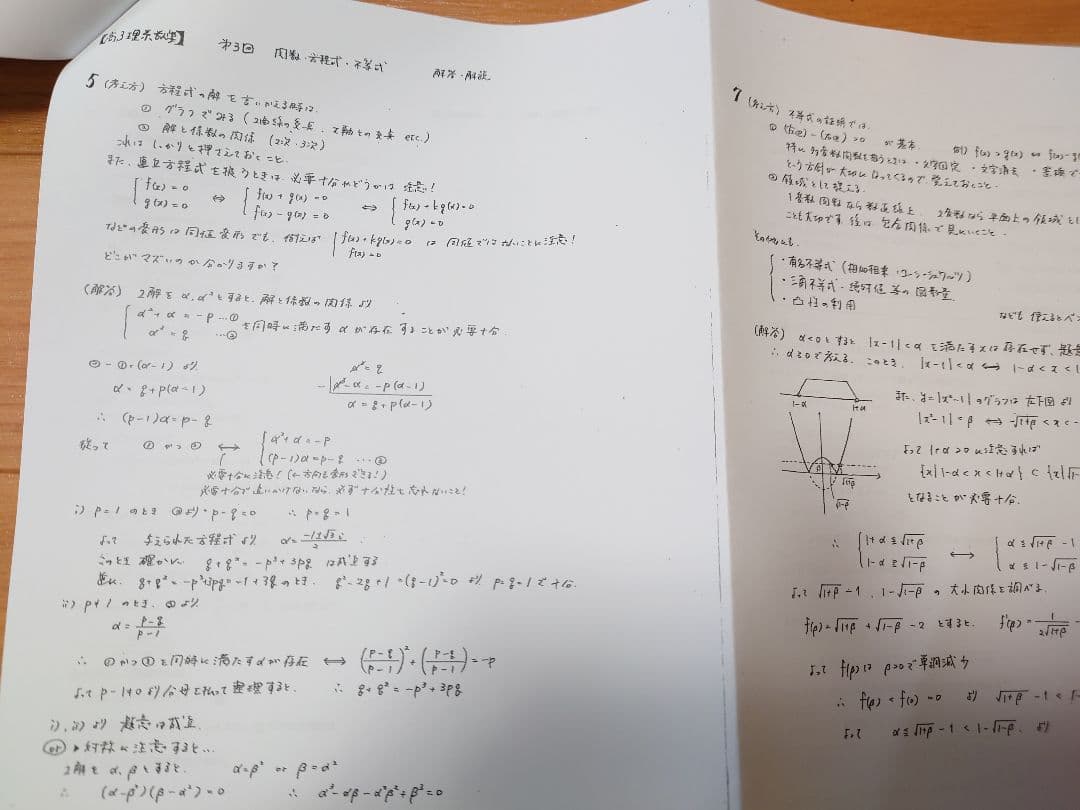 【高3理系数学】 第3回 関数・方程式・不等式 解答・解説
5 (考え方) 方程式の解を言いかえる時は、
① グラフでみる (2曲線の交点、x軸との交点 etc.)
② 解と係数の関係 (2次・3次)
これはしっかりと押さえておくこと。
また、連立方程式を扱うときは、必要十分かどうかは注意!
{ f(x)=0 ⇔ { f(x)+g(x)=0 ⇔ { f(x)+kg(x)=0
g(x)=0 f(x)-g(x)=0 g(x)=0
などの変形は同値変形でも、例えば { f(x)+kg(x)=0 は同値ではないことに注意!
f(x)=0
どこがマズいのか分かりますか?
(解答) 2解をα, α²とすると、解と係数の関係より
{ α²+α=-p …①
α³=q …② を同時に満たすαが存在することが必要十分.
②-①×(α-1) より
α=q+p(α-1)
α³=q
-) α³-α=-p(α-1)
α=q+p(α-1)
∴ (p-1)α=p-q
従って ①かつ② ⇔ { α²+α=-p
(p-1)α=p-q …③
必要十分に注意! (←方向も変形できる!)
必要十分で追いかけないなら、必ず十分性を忘れないこと!
i) p=1のとき ③より p-q=0 ∴ p=q=1
よって 与えられた方程式より α=(-1±√3i)/2
このとき確かに q+q²=-p³+3pq は成立する
逆に、q+q²=-p³+3pq=-1+3qのとき、q²-2q+1=(q-1)²=0 より p=q=1で十分.
ii) p≠1のとき、③より
α=(p-q)/(p-1)
∴ ①かつ③を同時に満たすαが存在 ⇔ ((p-q)/(p-1))²+((p-q)/(p-1))=-p
よって p-1≠0より分母を払って整理すると、 ∴ q+q²=-p³+3pq
i), ii)より 題意は成立.
or ▸対称に注意すると…
2解をα, βとすると、 α=β² or β=α²
∴ (α-β²)(β-α²)=0 ∴ α³-αβ-α²β²+β³=0
7 (考え方) 不等式の証明では、
① (右辺)-(左辺)>0 が基本. 例) f(x)>g(x) ⇔ f(x)-g(
特に多変数関数を扱うときは・文字固定 ・文字消去 ・置換で
という方針が大切になってくるので覚えておくこと。
② 領域として捉える.
1変数関数なら数直線上、2変数なら平面上の領域とし
ことも大切です 後は包含関係で見ていくこと.
その他にも、
{ ・有名不等式 (相加相乗・コーシーシュワルツ)
・三角不等式・絶対値等の図形量
・凸性の利用
なども使えるとベン
(解答) α<0とすると |x-1|<αを満たすxは存在せず、題意
∴ α≧0で考える. このとき、|x-1|<α ⇔ 1-α<x<1
1-α 1+α
また、y=|x²-1|のグラフは左下図より
|x²-1|=β ⇔ -√1+β<x<-
よって 1+α>0に注意すれば
{x|1-α<x<1+α} ⊂ {x|√1-
となることが必要十分.
β √1+β √1-β
∴ { 1+α≦√1+β ⇔ { α≦√1+β-1
1-α≧√1-β α≦1-√1-β
よって √1+β-1, 1-√1-β の大小関係を調べる.
f(β)=√1+β+√1-β-2 とすると、 f'(β)=1/(2√1+β)-
よって f(β)は β>0で単調減少
∴ f(β)<f(0)=0 より √1+β-1<1-
よって α≦√1+β-1<1-√1-β より